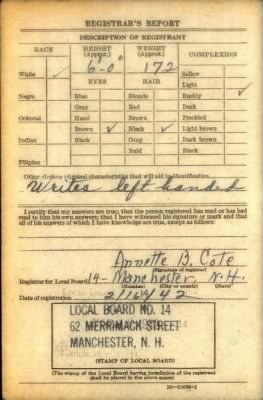 REGISTRAR'S REPORT
DESCRIPTION OF REGISTRANT
RACE HEIGHT (Approx.) WEIGHT (Approx.) COMPLEXION
White ✓ 6'-0" 172 Sallow
EYES HAIR Light
Negro Blue Blonde Ruddy ✓
Gray Red Dark
Oriental Hazel Brown Freckled
Brown ✓ Black ✓ Light brown
Indian Black Gray Dark brown
Bald Black
Filipino
Other obvious physical characteristics that will aid in identification
Writes left handed
I certify that my answers are true; that the person registered has read or has had
read to him his own answers; that I have witnessed his signature or mark and that
all of his answers of which I have knowledge are true, except as follows:
Annette B. Cote
(Signature of registrar)
Registrar for Local Board 14 - Manchester, N. H.
(Number) (City or county) (State)
Date of registration 2/16/42
LOCAL BOARD NO. 14
62 MERRIMACK STREET
MANCHESTER, N. H.
(STAMP OF LOCAL BOARD)
(The stamp of the Local Board having jurisdiction of the registrant
shall be placed in the above space)